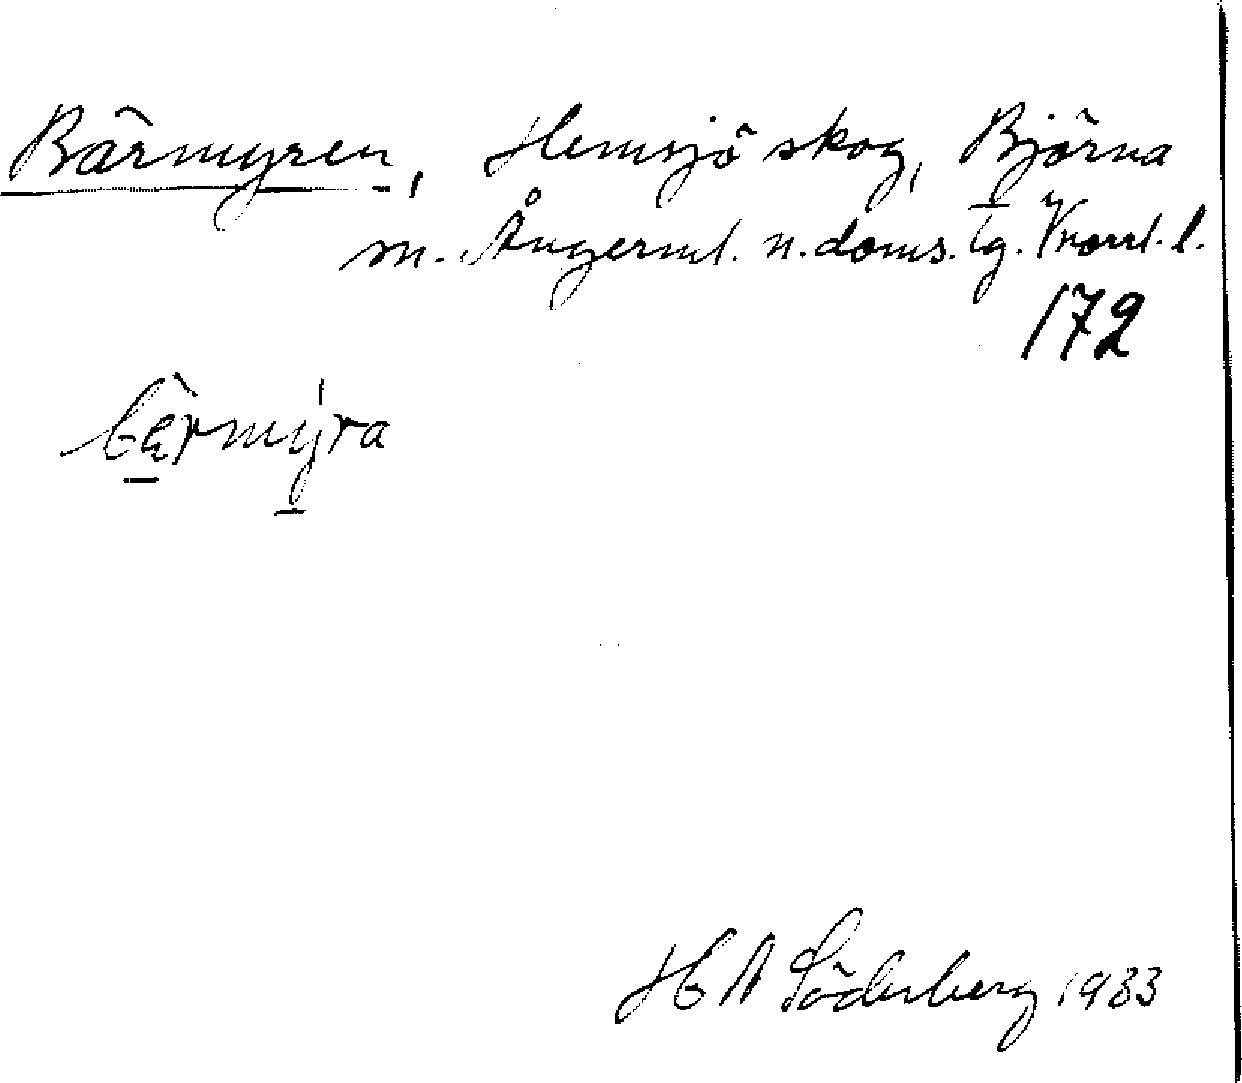 Bärmyren, Hemsjö skog, Björna
m. Ångerml. n. doms. tg. Vnorrl. l.
172
bærmyra
H A Söderberg 1933